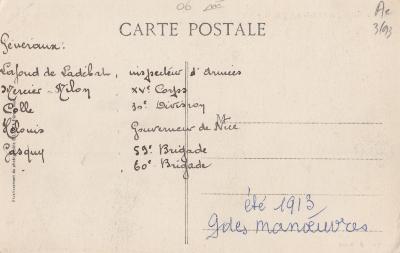 06
Ae
3/93
CARTE POSTALE
Généraux :
Lafond de Ladébat, inspecteur d'armées
Mercier-Milon XVe Corps
Colle 30e Division
Gouverneur de Nice
M
59e Brigade
60e Brigade
été 1913
gdes manœuvres